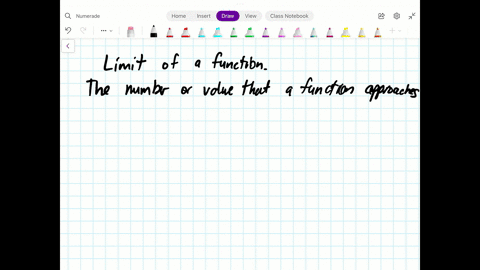 Numerade
Home Insert Draw View Class Notebook
Limit of a function.
The number or value that a function approaches